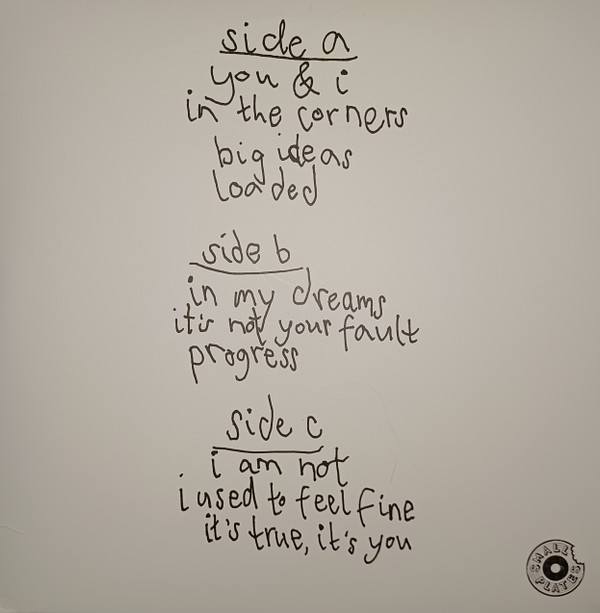 side a
you & i
in the corners
big ideas
loaded
side b
in my dreams
it's not your fault
progress
side c
i am not
i used to feel fine
it's true, it's you
SMALL PLATES